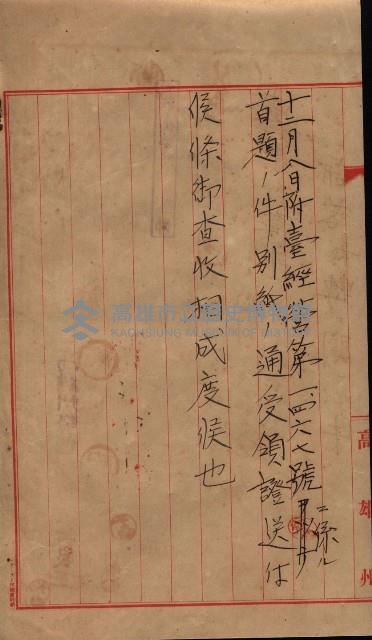 十二月八日附臺經營第一四六七號ニ係ル
首題ノ件別紙通受領證送付
候條御查收相成度候也
高雄州
高雄市立歷史博物館
KAOHSIUNG MUSEUM OF HISTORY